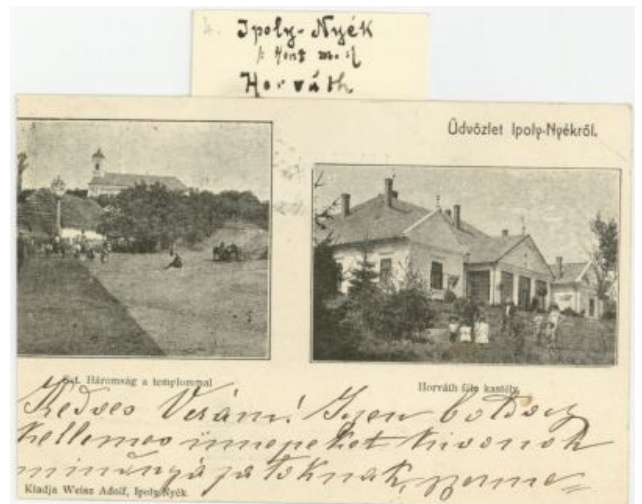 Ipoly-Nyék
Hont m.
Horváth
Üdvözlet Ipoly-Nyékről.
Szt. Háromság a templommal
Horváth féle kastély.
Kedves Verám! Igen boldog
kellemes ünnepeket kivonok
mindnyájatoknak,
Kiadja Weisz Adolf, Ipoly-Nyék.